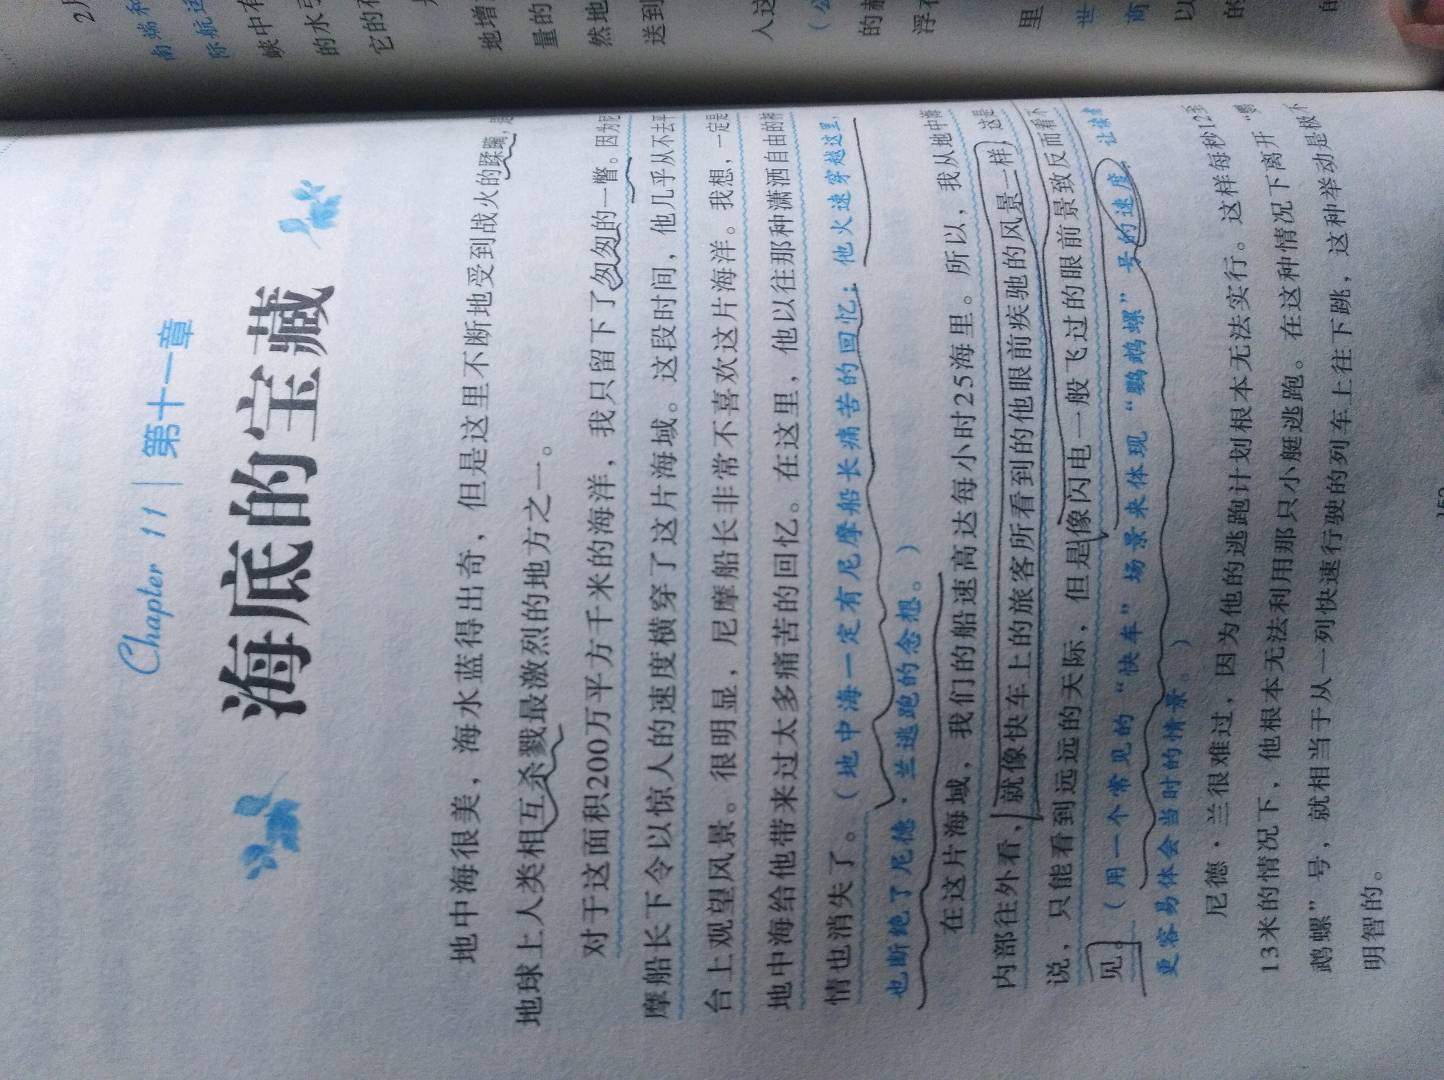 Chapter 11 | 第十一章
海底的宝藏
地中海很美，海水蓝得出奇，但是这里不断地受到战火的蹂躏，
地球上人类相互杀戮最激烈的地方之一。
对于这面积200万平方千米的海洋，我只留下了匆匆的一瞥。因为
摩船长下令以惊人的速度横穿了这片海域。这段时间，他几乎从不去平
台上观望风景。很明显，尼摩船长非常不喜欢这片海洋。我想，一定是
地中海给他带来过太多痛苦的回忆。在这里，他以往那种潇洒自由的
情也消失了。（地中海一定有尼摩船长痛苦的回忆；他火速穿越这里，
也断绝了尼德·兰逃跑的念想。）
在这片海域，我们的船速高达每小时25海里。所以，我从地中海
内部往外看，就像快车上的旅客所看到的他眼前疾驰的风景一样，这是
说，只能看到远远的天际，但是像闪电一般飞过的眼前景致反而看不
见。（用一个常见的“快车”场景来体现“鹦鹉螺”号的速度，让读者
更容易体会当时的情景。）
尼德·兰很难过，因为他的逃跑计划根本无法实行。这样每秒12至
13米的情况下，他根本无法利用那只小艇逃跑。在这种情况下离开“鹦
鹉螺”号，就相当于从一列快速行驶的列车上往下跳，这种举动是极不
明智的。